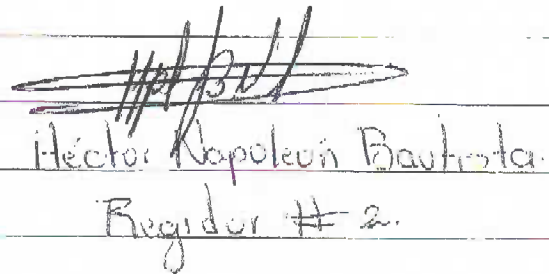 Héctor Napoleón Bautista.
Regidor # 2.